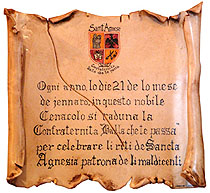 Sant'Agnese
Ogni anno, lo die 21 de lo mese
de jennaro, in questo nobile
Cenacolo si raduna la
Confraternita "Balla che te passa"
per celebrare li reti de Sancta
Agnesia patrona de li maldicenti